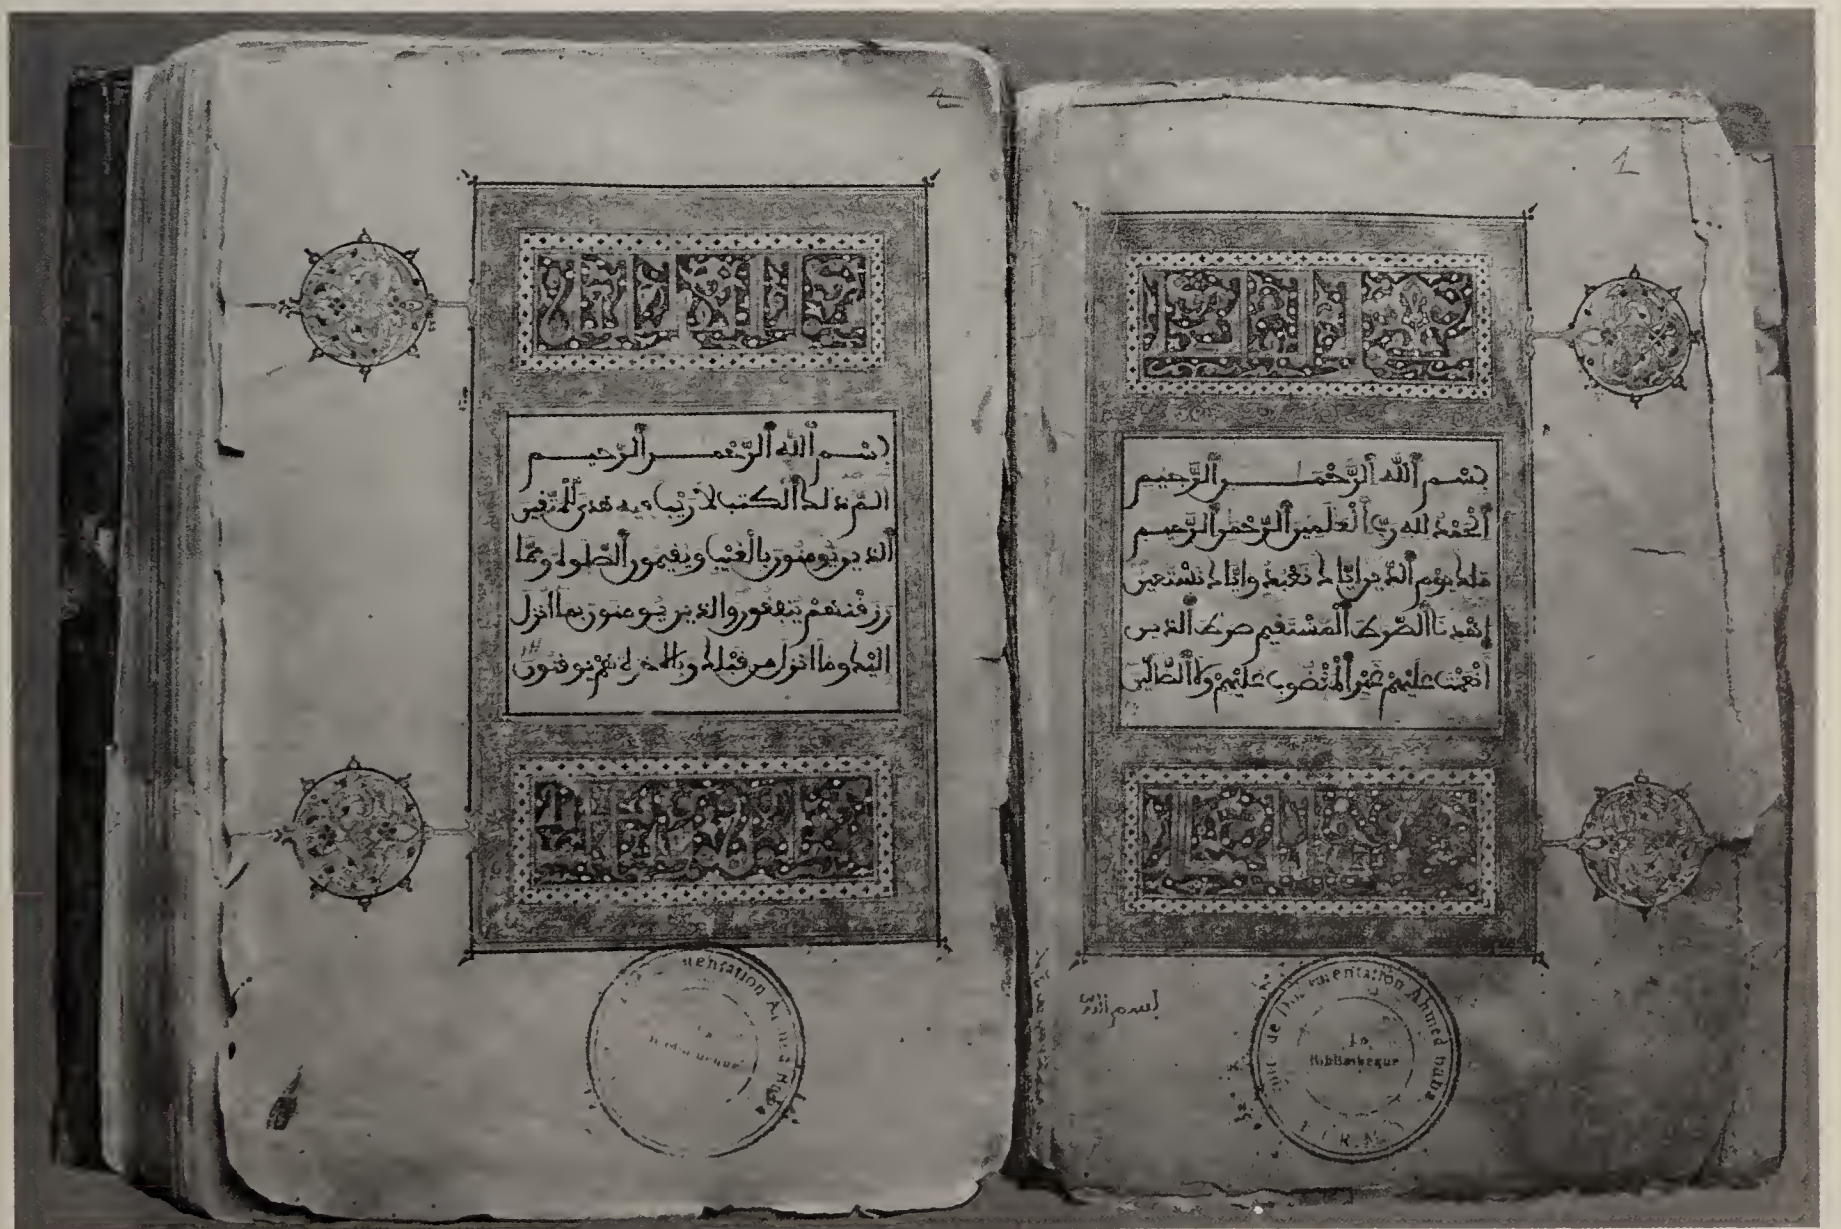 1
بسم الله الرحمن الرحيم
الحمد لله رب العلمين الرحمن الرحيم
ملك يوم الدين اياك نعبد واياك نستعين
اهدنا الصرط المستقيم صرط الذين
انعمت عليهم غير المغضوب عليهم ولا الضالين
بسم الله
de Documentation Ahmed Baba
La
Bibliotheque
بسم الله الرحمن الرحيم
الم ذلك الكتب لا ريب فيه هدى للمتقين
الذين يومنون بالغيب ويقيمون الصلوة ومما
رزقنهم ينفقون والذين يومنون بما انزل
اليك وما انزل من قبلك وبالاخرة هم يوقنون